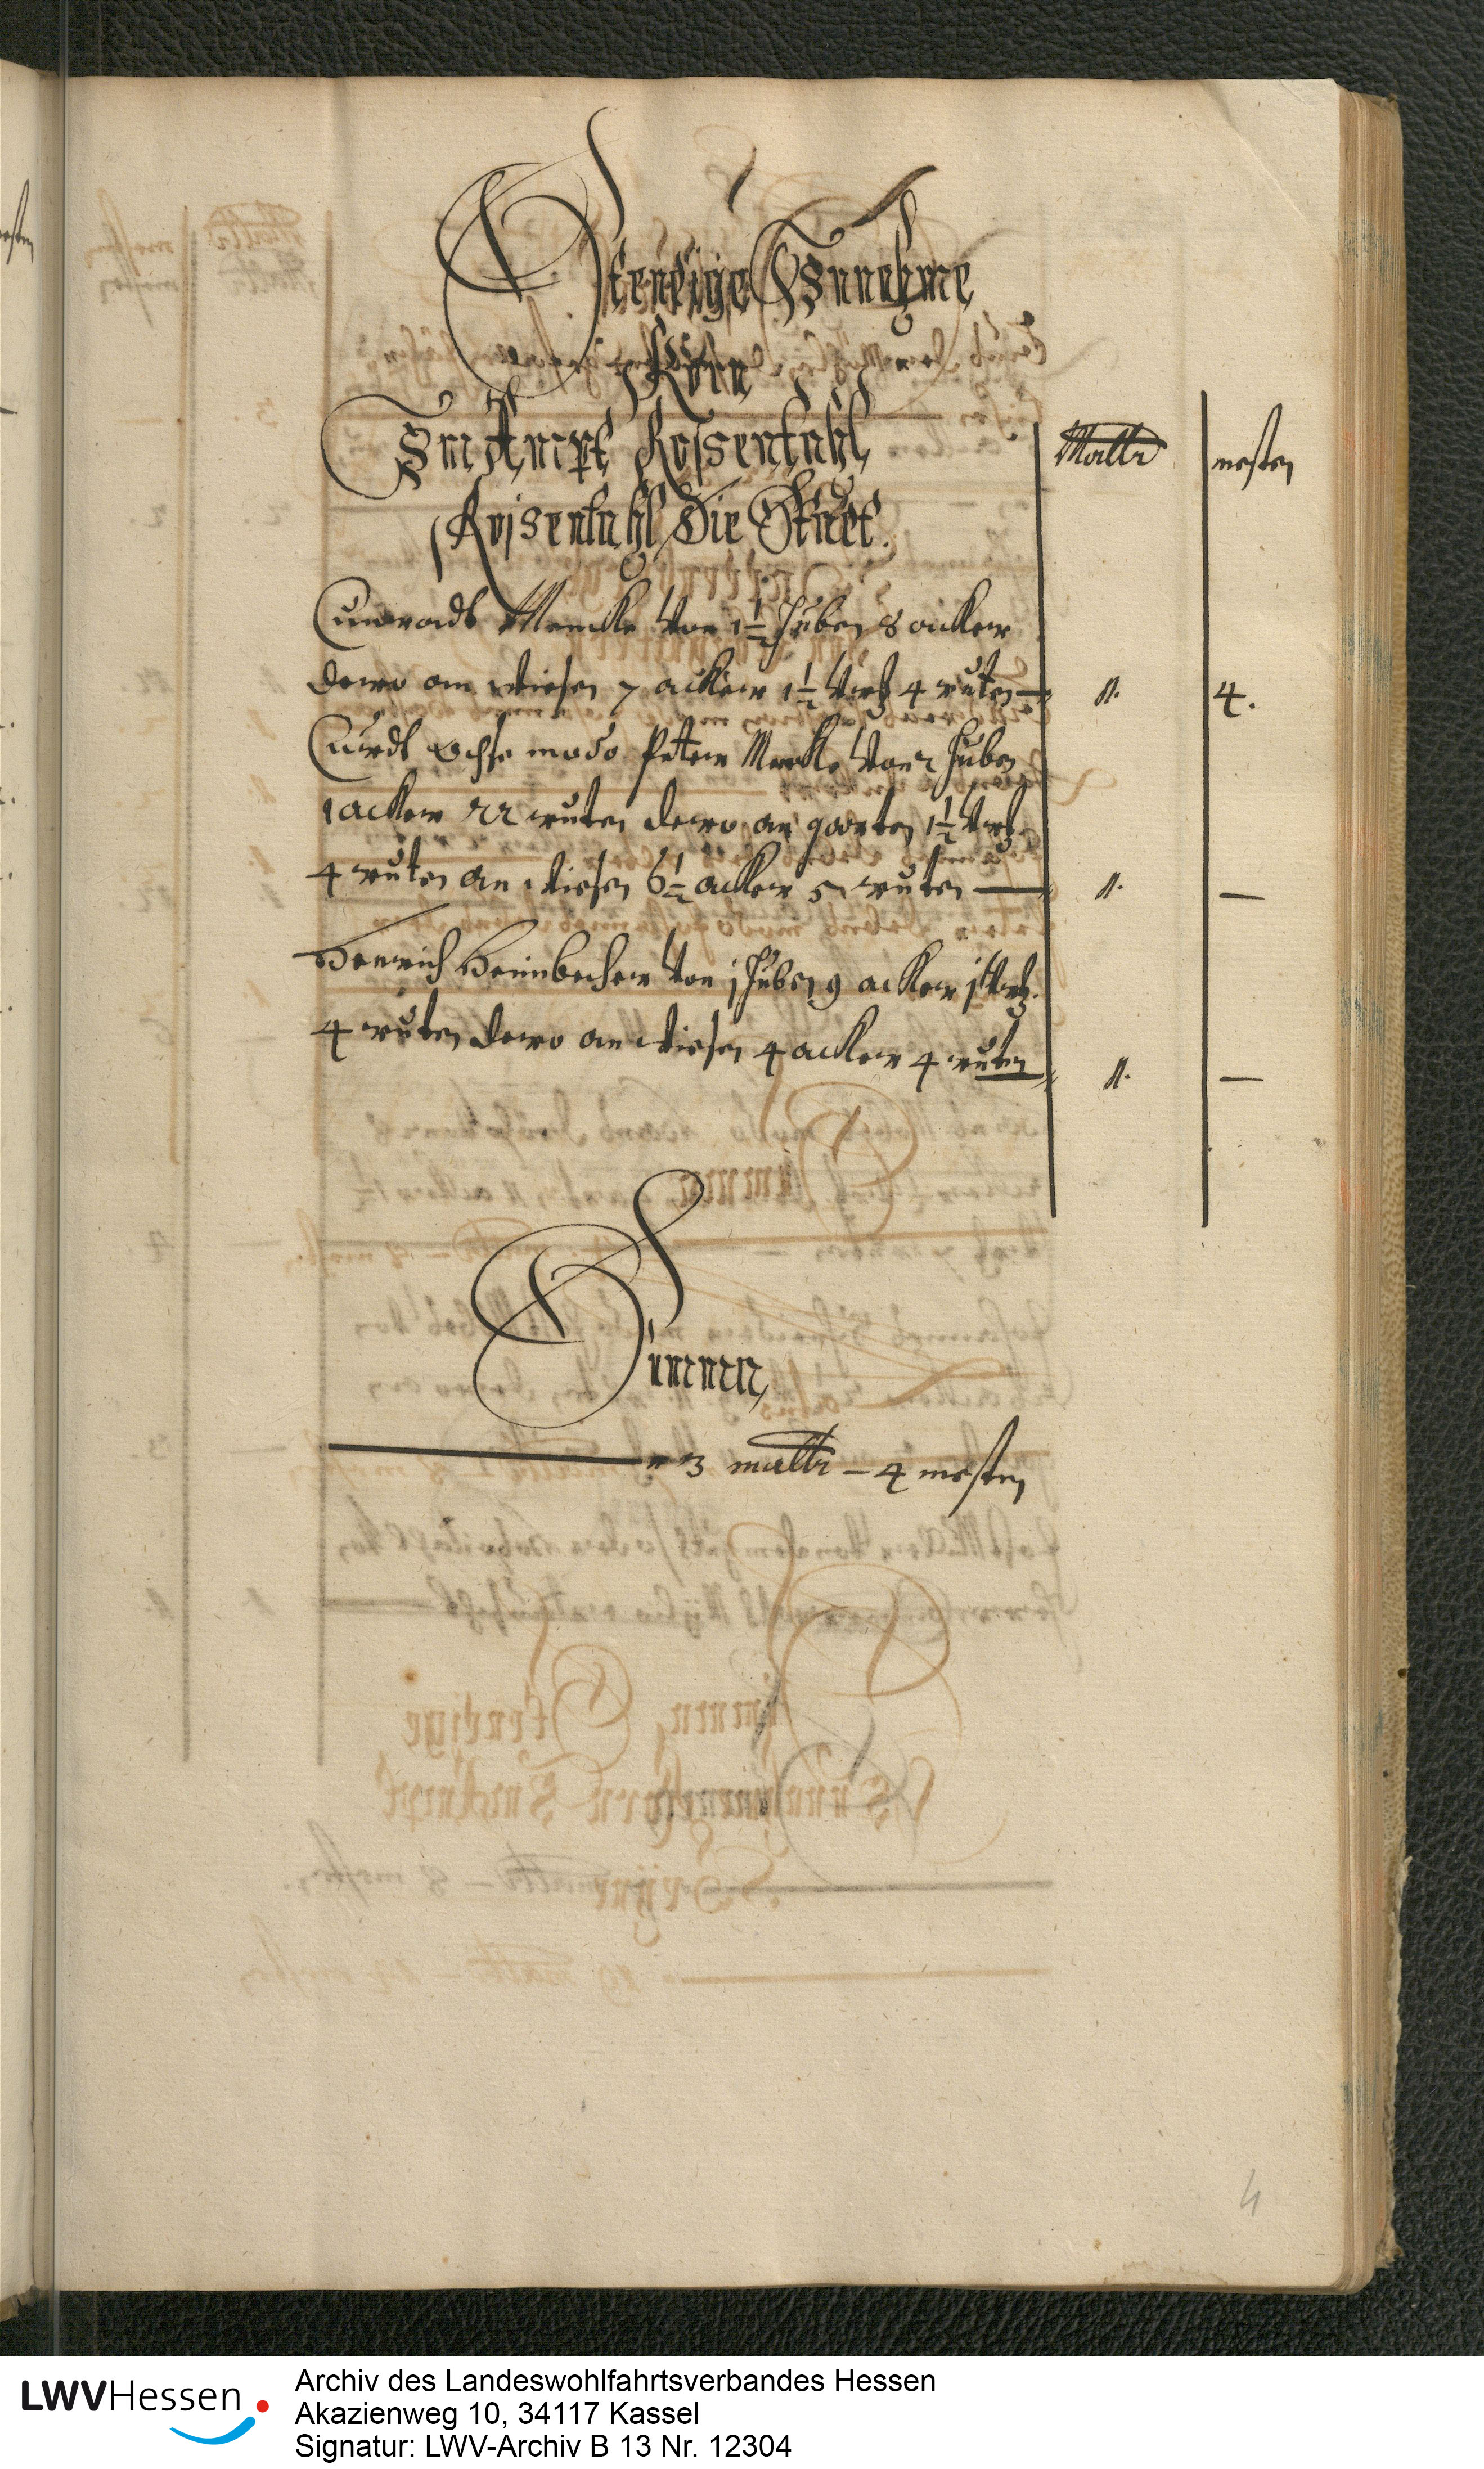 Stendige Innehme
Korn
Im Ampt Rossentahl
Rosentahl Die Stadt.
Maltr mesten
Cunradt Mencke von 1½ huben 8 acker
dero an wiesen 7 acker 1½ virtz 4 ruten — 1. 4.
Curdt Ochse modo Peter Mencke von 2 huben
1 acker 22 ruten dero an garten 1½ virtz
4 ruten an wiesen 6½ acker 5 ruten — 1. —
Henrich Heimbecher von j huben 9 acker j virtz.
4 ruten dero an wiesen 4 acker 4 ruten 1. —
Summa
3 maltr – 4 mesten
4
LWVHessen
Archiv des Landeswohlfahrtsverbandes Hessen
Akazienweg 10, 34117 Kassel
Signatur: LWV-Archiv B 13 Nr. 12304